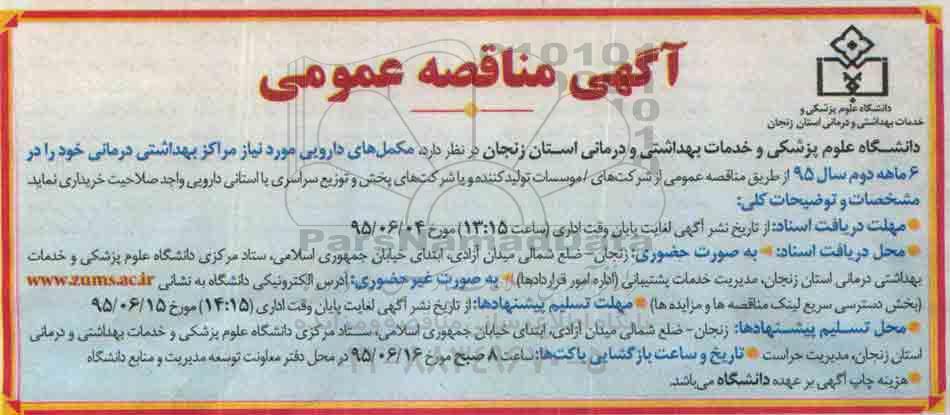 آگهی مناقصه عمومی
دانشگاه علوم پزشکی و
خدمات بهداشتی و درمانی استان زنجان
دانشگاه علوم پزشکی و خدمات بهداشتی و درمانی استان زنجان در نظر دارد، مکمل‌های دارویی مورد نیاز مراکز بهداشتی درمانی خود را در
۶ ماهه دوم سال ۹۵ از طریق مناقصه عمومی از شرکت‌های /موسسات تولید کننده و یا شرکت‌های پخش و توزیع سراسری یا استانی دارویی واجد صلاحیت خریداری نماید.
مشخصات و توضیحات کلی:
مهلت دریافت اسناد: از تاریخ نشر آگهی لغایت پایان وقت اداری (ساعت ۱۳:۱۵) مورخ ۹۵/۰۶/۰۴
محل دریافت اسناد: به صورت حضوری: زنجان- ضلع شمالی میدان آزادی، ابتدای خیابان جمهوری اسلامی، ستاد مرکزی دانشگاه علوم پزشکی و خدمات
بهداشتی درمانی استان زنجان، مدیریت خدمات پشتیبانی (اداره امور قراردادها) به صورت غیر حضوری: آدرس الکترونیکی دانشگاه به نشانی www.zums.ac.ir
(بخش دسترسی سریع لینک مناقصه ها و مزایده ها) مهلت تسلیم پیشنهادها: از تاریخ نشر آگهی لغایت پایان وقت اداری (۱۴:۱۵) مورخ ۹۵/۰۶/۱۵
محل تسلیم پیشنهادها: زنجان- ضلع شمالی میدان آزادی، ابتدای خیابان جمهوری اسلامی، ستاد مرکزی دانشگاه علوم پزشکی و خدمات بهداشتی و درمانی
استان زنجان، مدیریت حراست تاریخ و ساعت بازگشایی پاکت‌ها: ساعت ۸ صبح مورخ ۹۵/۰۶/۱۶ در محل دفتر معاونت توسعه مدیریت و منابع دانشگاه
هزینه چاپ آگهی بر عهده دانشگاه می‌باشد.
ParsNamadData